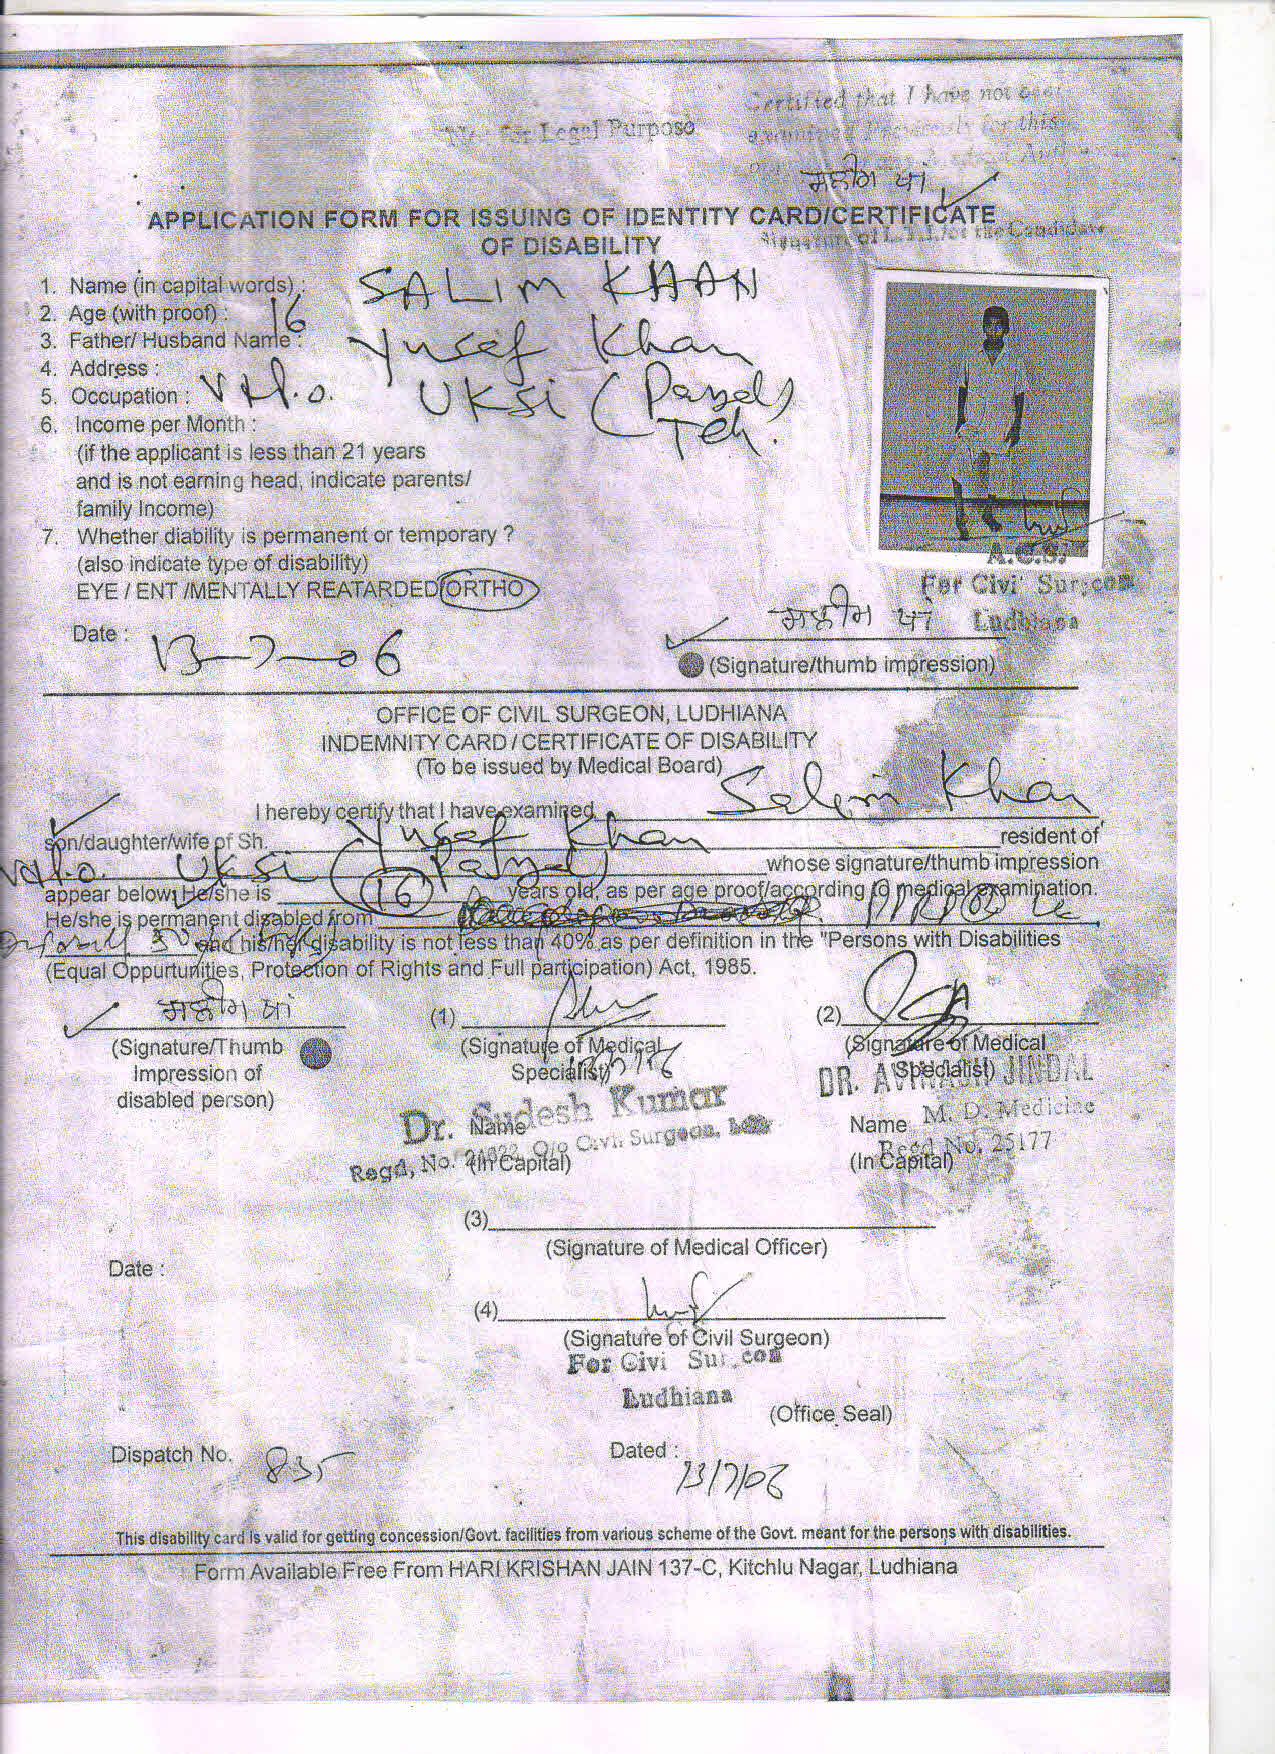 Certified that I have not been
for Legal Purpose
ਸਲੀਮ ਖਾਂ
APPLICATION FORM FOR ISSUING OF IDENTITY CARD/CERTIFICATE
OF DISABILITY
Signature of L.T.I. of the Candidate
1. Name (in capital words) : SALIM KHAN
2. Age (with proof) : 16
3. Father/ Husband Name : Yusef Khan
4. Address :
5. Occupation : V.P.o. UKsi (Payal)
Teh.
6. Income per Month :
(if the applicant is less than 21 years
and is not earning head, indicate parents/
family Income)
7. Whether diability is permanent or temporary ?
(also indicate type of disability)
EYE / ENT /MENTALLY REATARDED/ORTHO
A.C.S.
For Civil Surgeon
Ludhiana
Date : 13-7-06
ਸਲੀਮ ਖਾਂ
(Signature/thumb impression)
OFFICE OF CIVIL SURGEON, LUDHIANA
INDEMNITY CARD / CERTIFICATE OF DISABILITY
(To be issued by Medical Board)
I hereby certify that I have examined Salim Khan
son/daughter/wife of Sh. Yusef Khan resident of
V.P.o. UKsi (Payal) whose signature/thumb impression
appear below. He/she is 16 years old, as per age proof/according to medical examination.
He/she is permanent disabled from PPRP
and his/her disability is not less than 40% as per definition in the "Persons with Disabilities
(Equal Oppurtunities, Protection of Rights and Full participation) Act, 1985.
ਸਲੀਮ ਖਾਂ
(1)
(2)
(Signature/Thumb
Impression of
disabled person)
(Signature of Medical
Specialist)
(Signature of Medical
Specialist)
Dr. Sudesh Kumar
DR. AVINASH JINDAL
Name
Name M. D. Medicine
Regd. No. O/o Civil Surgeon,
Regd No. 25177
(In Capital)
(In Capital)
(3)
(Signature of Medical Officer)
Date :
(4)
(Signature of Civil Surgeon)
For Civil Surgeon
Ludhiana
(Office Seal)
Dispatch No. 835
Dated : 13/7/06
This disability card is valid for getting concession/Govt. facilities from various scheme of the Govt. meant for the persons with disabilities.
Form Available Free From HARI KRISHAN JAIN 137-C, Kitchlu Nagar, Ludhiana